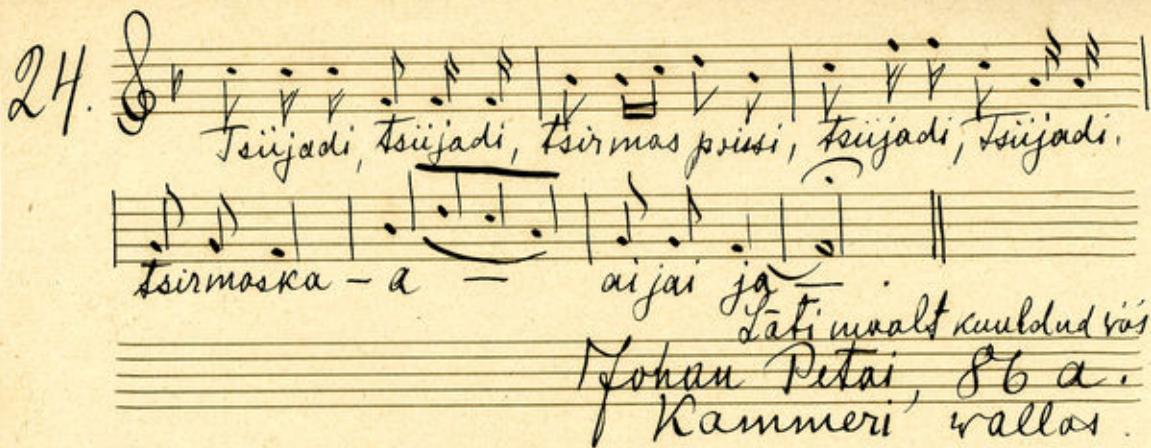 24.
Tsiijadi, tsiijadi, tsirmas priisi, tsiijadi, Tsiijadi.
tsirmaska - a - aijai ja - .
Läti maalt kuuldud viis
Johan Petai, 86 a.
Kammeri wallas.